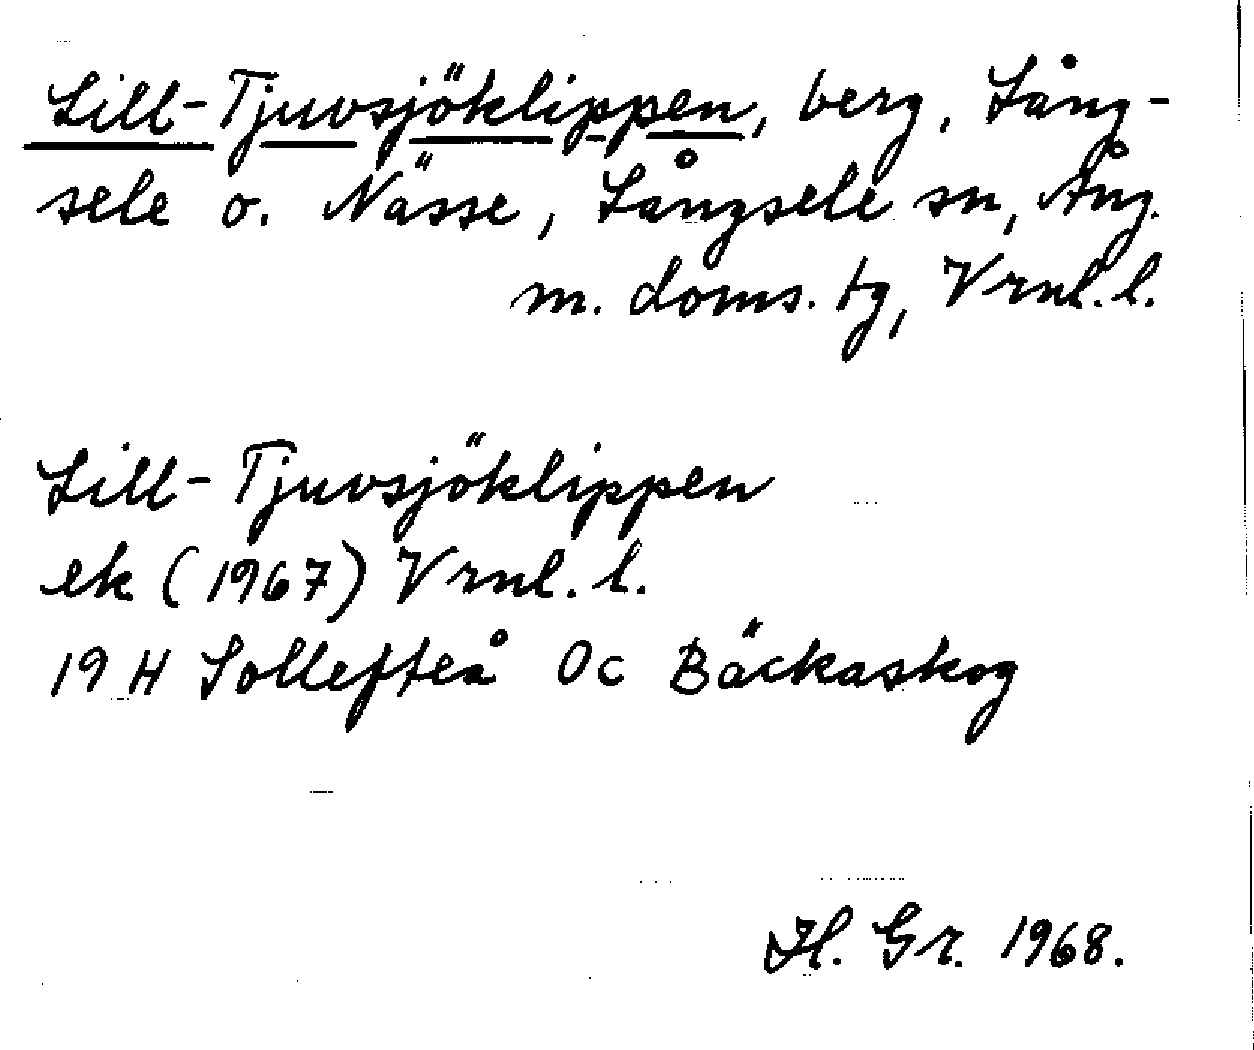 Lill-Tjuvsjöklippen, berg, Lång-
sele o. Nässe, Långsele sn, Ång.
m. doms. tg, Vrnl. l.
Lill-Tjuvsjöklippen
ek (1967) Vrnl. l.
19 H Sollefteå Oc Bäckaskog
H. Gr. 1968.